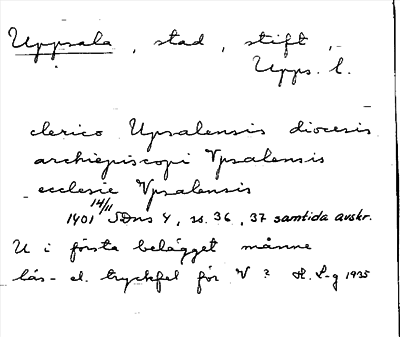 Uppsala, stad, stift,
Upps. l.
clerico Upsalensis diocesis
archiepiscopi Vpsalensis
ecclesie Vpsalensis
1401 14/11 SDns 4, ss. 36, 37 samtida avskr.
U i första belägget månne
läs- el. tryckfel för V? H. L-g 1935